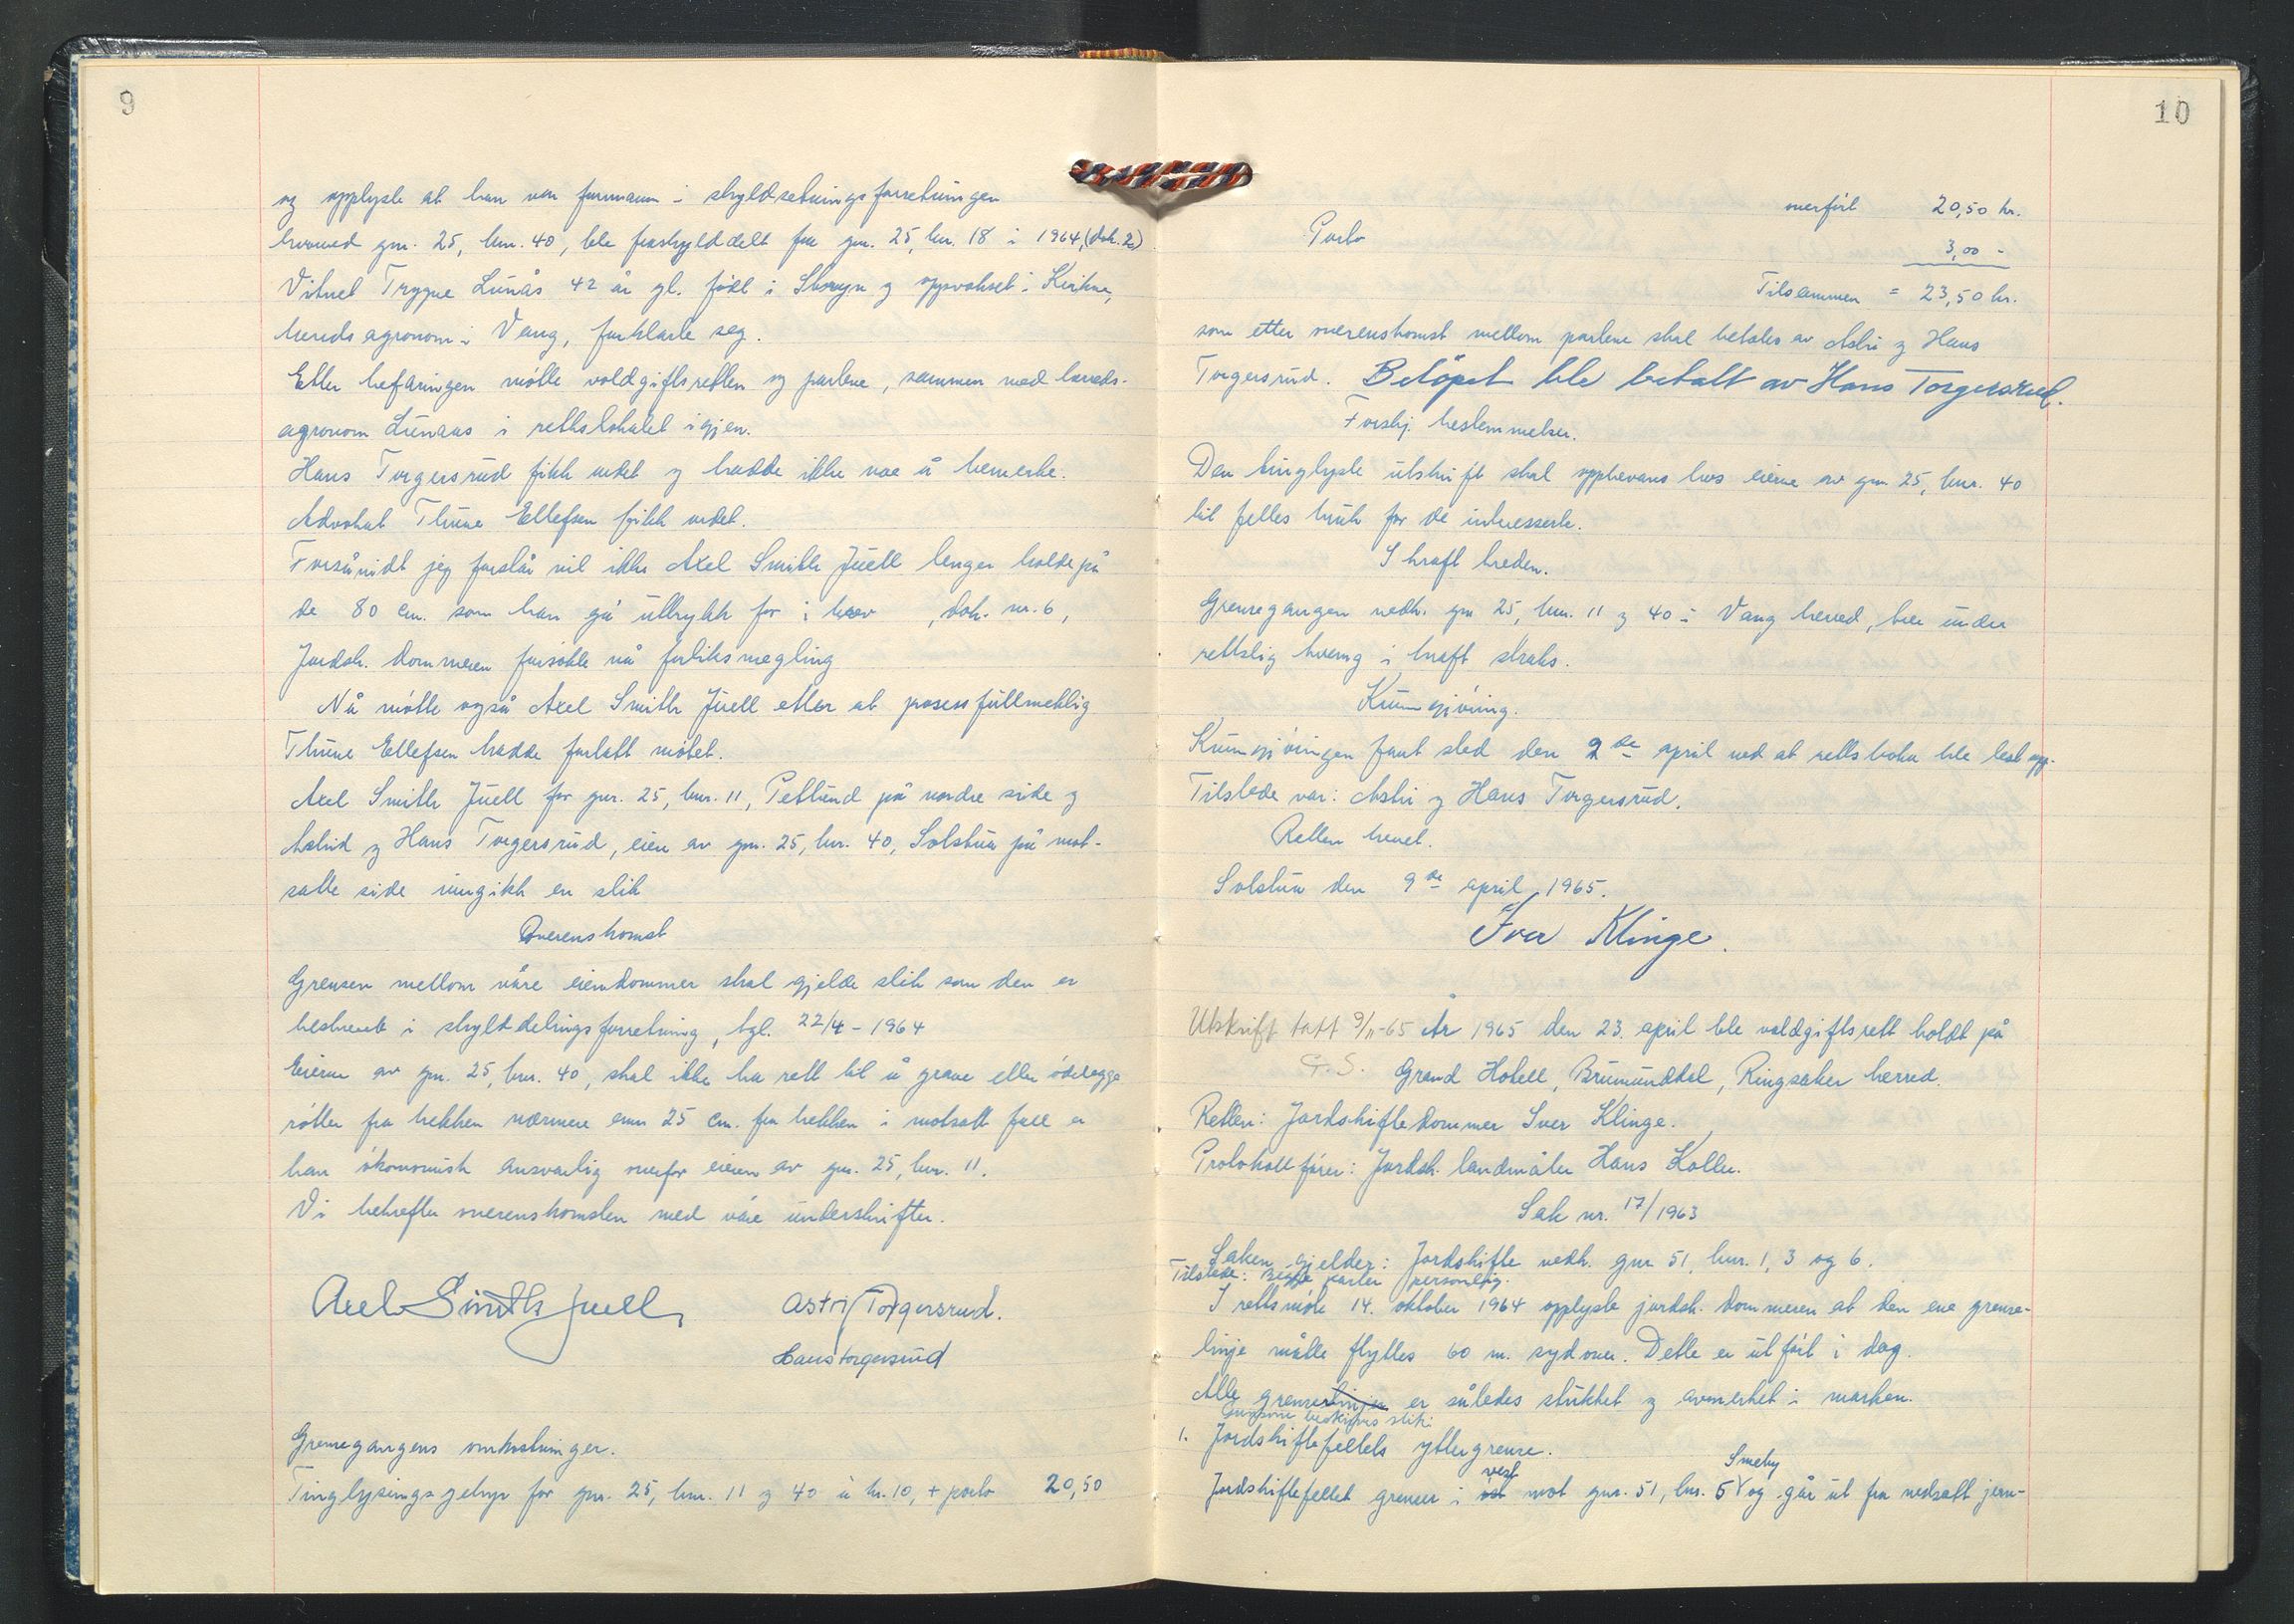 9
og opplyste at han var formann i skyldsetningsforretningen
hvorved gnr. 25, bnr. 40, ble fraskylddelt fra gnr. 25, bnr. 18 i 1964, (dok. 2)
Vitnet Trygve Lunås 42 år gl. født i Stryn og oppvokset i Kirkenær,
herredsagronom i Vang, forklarte seg.
Etter befaringen møtte voldgiftsretten og partene, sammen med herreds-
agronom Lunaas i rettslokalet igjen.
Hans Torgersrud fikk ordet og hadde ikke noe å bemerke.
Advokat Thune Ellefsen fikk ordet.
Forsåvidt jeg forstår vil ikke Axel Smith Juell lenger holde på
de 80 cm. som han ga uttrykk for i brev , dok. nr. 6,
Jordsk. dommeren forsøkte nå forliksmegling
Nå møtte også Axel Smith Juell etter at prosessfullmektig
Thune Ellefsen hadde forlatt møtet.
Axel Smith Juell for gnr. 25, bnr. 11, Petlund på nordre side og
Astrid og Hans Torgersrud, eier av gnr. 25, bnr. 40, Solstua på mot-
satte side inngikk en slik
Overenskomst
Grensen mellom våre eiendommer skal gjelde slik som den er
beskrevet i skylddelingsforretning, tgl. 22/4 - 1964
Eierne av gnr. 25, bnr. 40, skal ikke ha rett til å grave eller ødelegge
røtter fra hekken nærmere enn 25 cm. fra hekken i motsatt fall er
han økonomisk ansvarlig overfor eieren av gnr. 25, bnr. 11.
Vi bekrefter overenskomsten med våre underskrifter.
Axel Smith Juell
Astri Torgersrud.
Hans Torgersrud
Grensegangens omkostninger.
Tinglysingsgebyr for gnr. 25, bnr. 11 og 40 à kr. 10, + porto 20,50
10
overført 20,50 kr.
Porto 3,00 -
Tilsammen = 23,50 kr.
som etter overenskomst mellom partene skal betales av Astri og Hans
Torgersrud. Beløpet ble betalt av Hans Torgersrud.
Forskj. bestemmelser.
Den tinglyste utskrift skal oppbevares hos eierne av gnr. 25, bnr. 40
til felles bruk for de interesserte.
I kraft treden.
Grensegangen vedk. gnr. 25, bnr. 11 og 40 i Vang herred, trer under
rettslig tvang i kraft straks.
Kunngjøring.
Kunngjøringen fant sted den 9de april ved at rettsboka ble lest opp.
Tilstede var: Astri og Hans Torgersrud.
Retten hevet.
Solstua den 9de april 1965.
Iver Klinge.
Utskrift tatt 9/11-65 År 1965 den 23. april ble voldgiftsrett holdt på
G.S. Grand Hotell, Brumunddal, Ringsaker herred.
Retten: Jordskiftedommer Iver Klinge.
Protokollfører: Jordsk. landmåler Hans Koller.
Sak nr. 17/1963
Saken gjelder: Jordskifte vedk. gnr. 51, bnr. 1, 3 og 6.
Tilstede: Begge parter personlig.
I rettsmøte 14. oktober 1964 opplyste jordsk. dommeren at den ene grense-
linje måtte flyttes 60 m. sydover. Dette er utført i dag.
Alle grenselinjer er således stukket og avmerket i marken.
Grensene beskrives slik:
1. Jordskiftefeltets yttergrense.
vest Smeby
Jordskiftefeltet grenser i øst mot gnr. 51, bnr. 5 og går ut fra nedsatt jern-